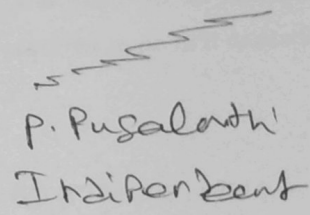 P. Pugalenthi
Indipendent